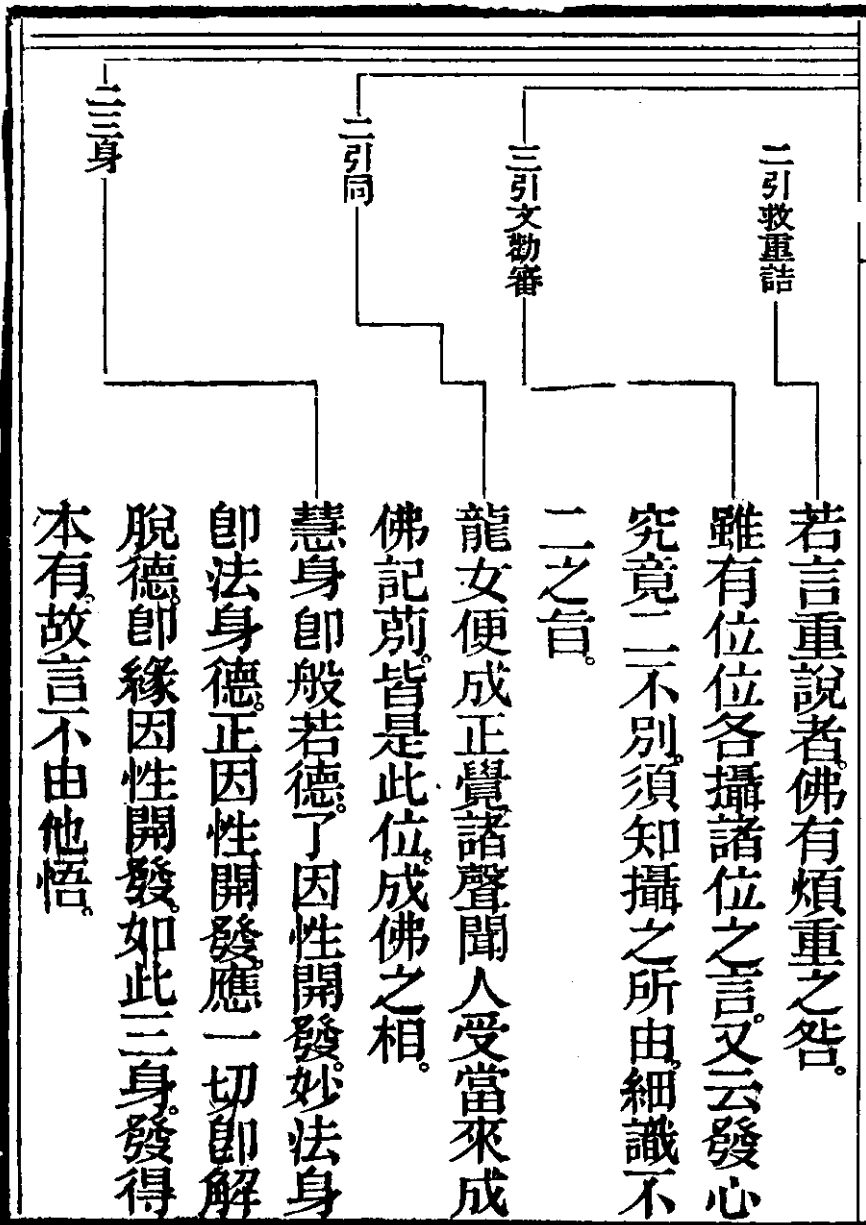 二引救重詰
若言重說者。佛有煩重之咎。
三引文勸審
雖有位位各攝諸位之言。又云發心
究竟二不別。須知攝之所由。細識不
二之旨。
二引同
龍女便成正覺。諸聲聞人受當來成
佛記莂。皆是此位。成佛之相。
二三身
慧身卽般若德。了因性開發。妙法身
卽法身德。正因性開發。應一切卽解
脫德。卽緣因性開發。如此三身。發得
本有。故言不由他悟。